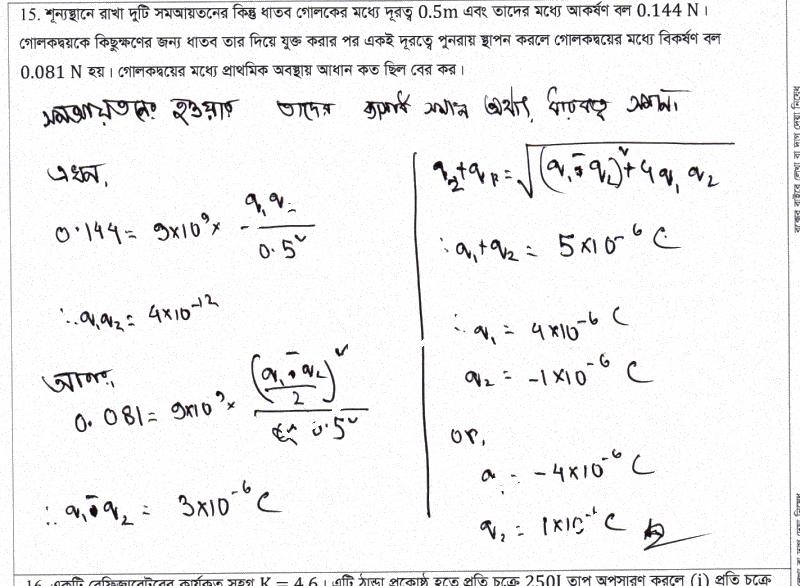 15. শূন্যস্থানে রাখা দুটি সমআয়তনের কিন্তু ধাতব গোলকের মধ্যে দূরত্ব 0.5m এবং তাদের মধ্যে আকর্ষণ বল 0.144 N।
গোলকদ্বয়কে কিছুক্ষণের জন্য ধাতব তার দিয়ে যুক্ত করার পর একই দূরত্বে পুনরায় স্থাপন করলে গোলকদ্বয়ের মধ্যে বিকর্ষণ বল
0.081 N হয়। গোলকদ্বয়ের মধ্যে প্রাথমিক অবস্থায় আধান কত ছিল বের কর।
সমআয়তনের হওয়ায় তাদের ব্যাসার্ধ সমান অর্থাৎ ধারকত্ব সমান।
এখন,
0.144 = 9×10⁹ × - q₁q₂ / 0.5²
∴ q₁q₂ = 4×10⁻¹²
আবার,
0.081 = 9×10⁹ × ((q₁ - q₂)/2)² / 0.5²
∴ q₁ - q₂ = 3×10⁻⁶ C
q₂+q₁ = √((q₁ - q₂)² + 4q₁q₂)
∴ q₁+q₂ = 5×10⁻⁶ C
∴ q₁ = 4×10⁻⁶ C
q₂ = -1×10⁻⁶ C
or,
q = -4×10⁻⁶ C
q₂ = 1×10⁻⁶ C
16. একটি রেফ্রিজারেটরের কার্যকৃত সহগ K = 4.6। এটি ঠান্ডা প্রকোষ্ঠ হতে প্রতি চক্রে 250J তাপ অপসারণ করলে (i) প্রতি চক্রে